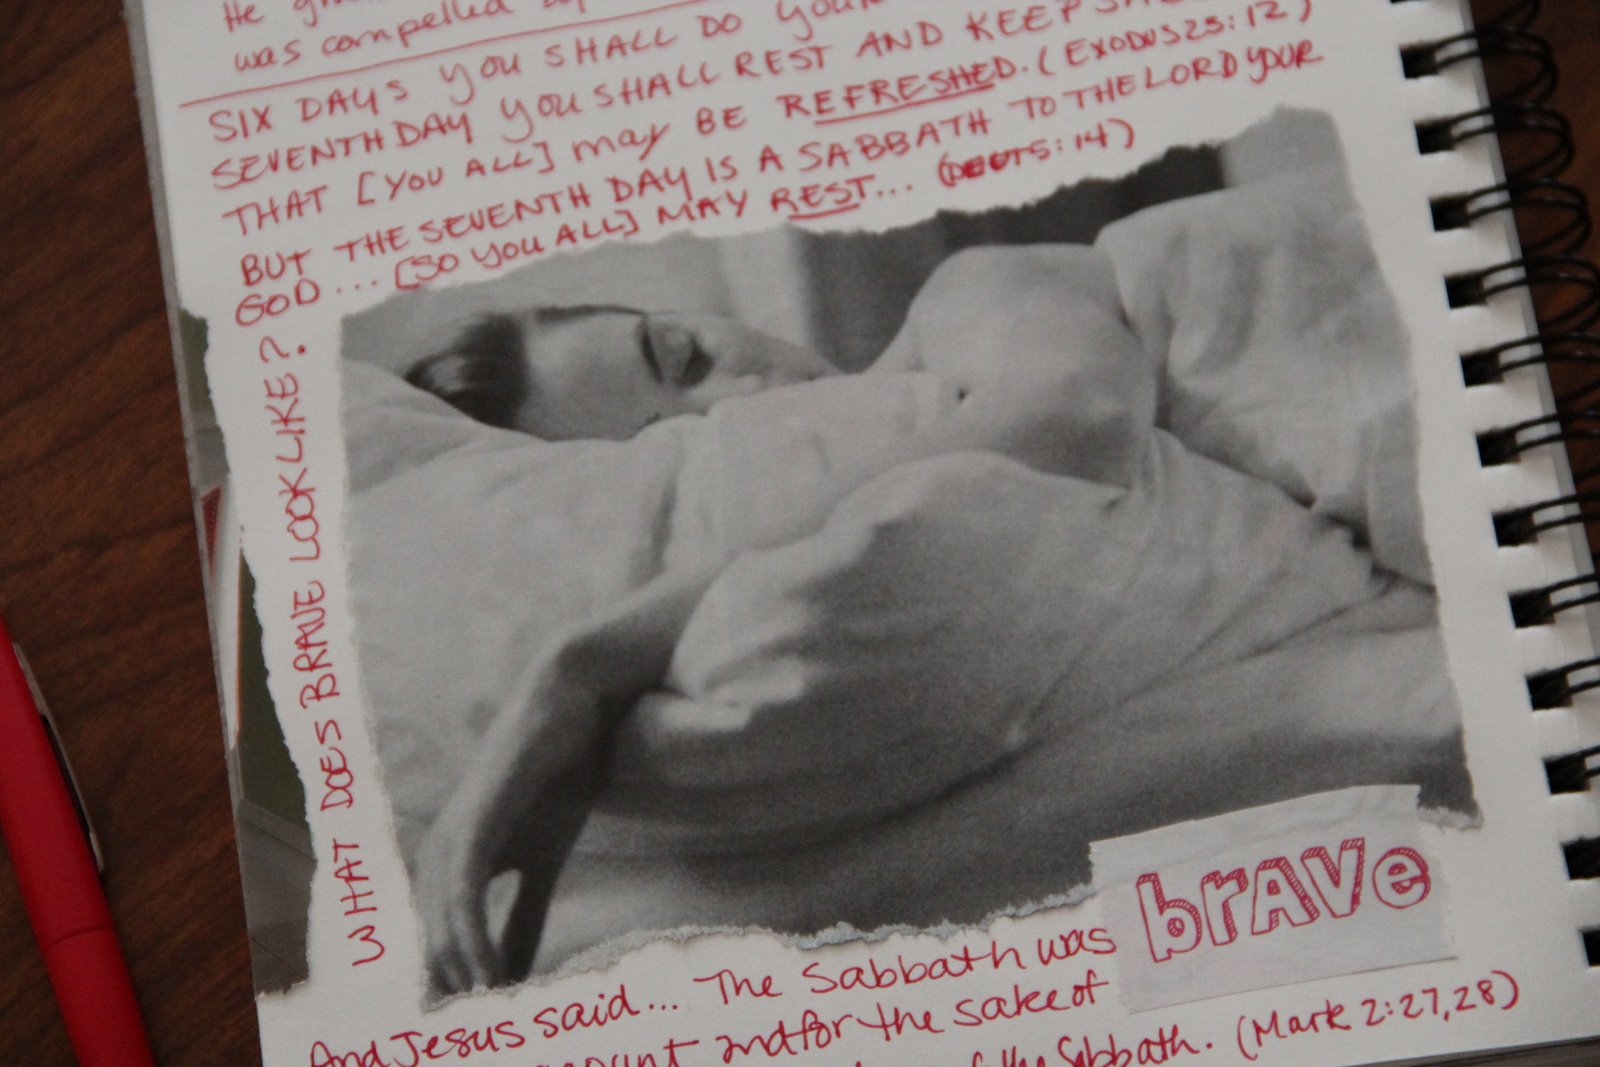 He
was compelled
SIX DAYS YOU SHALL DO YOUR
SEVENTH DAY YOU SHALL REST AND KEEP
THAT [YOU ALL] may BE REFRESHED. (EXODUS 25:12)
BUT THE SEVENTH DAY IS A SABBATH TO THE LORD YOUR
GOD... [SO YOU ALL] MAY REST... (DEUT 5:14)
WHAT DOES BRAVE LOOK LIKE?
brave
And Jesus said... The Sabbath was
and for the sake of
of the Sabbath. (Mark 2:27,28)